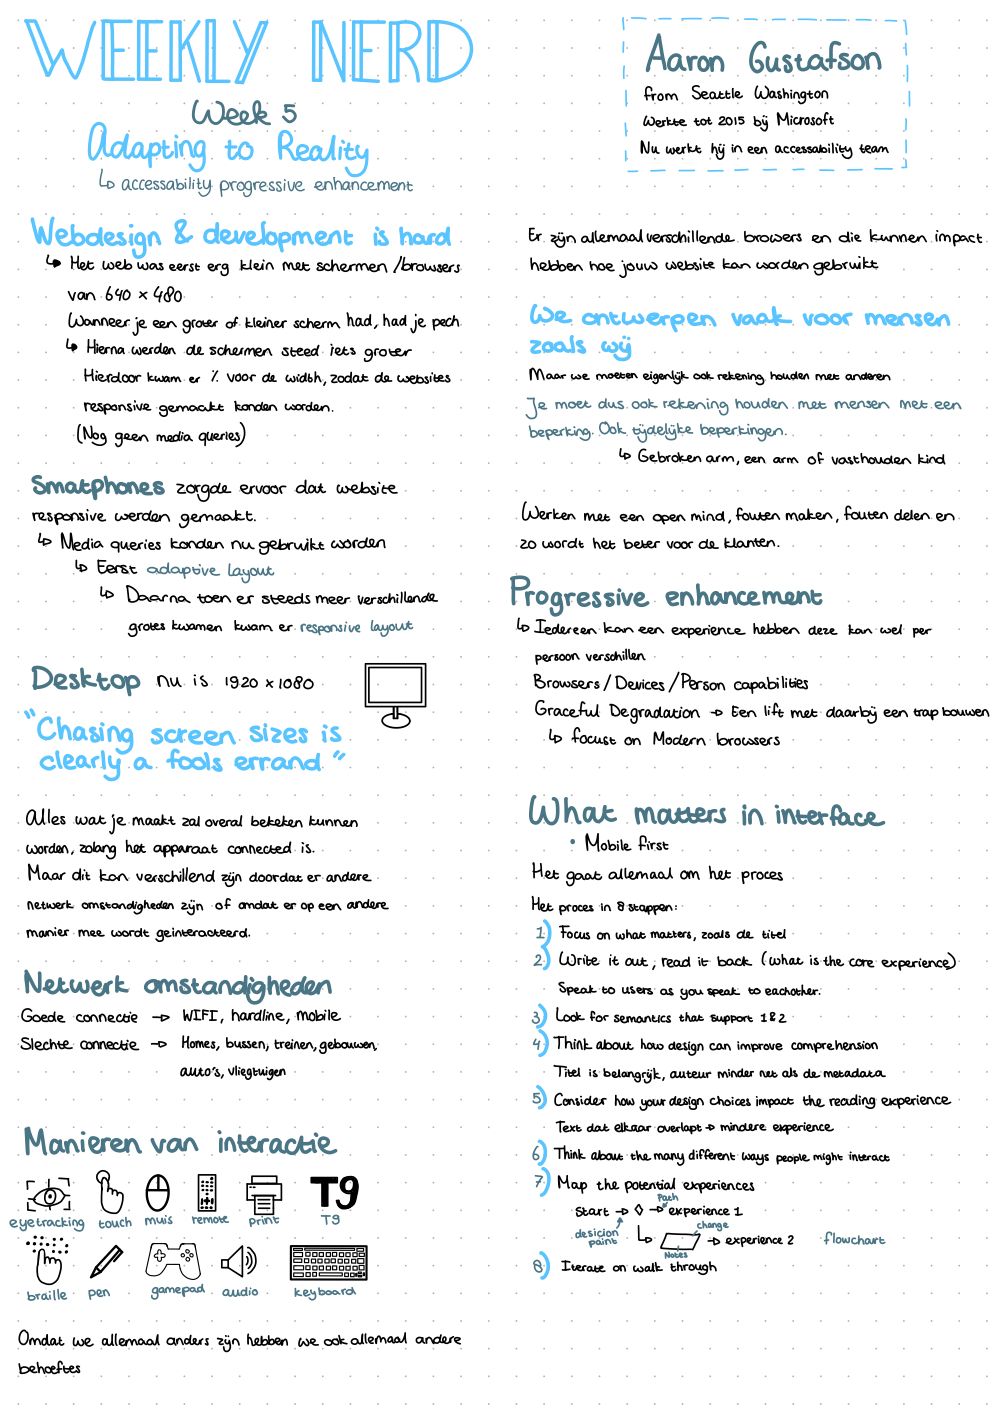 WEEKLY NERD
Week 5
Adapting to Reality
↳ accessability progressive enhancement
Aaron Gustafson
from Seattle Washington
Werkte tot 2015 bij Microsoft
Nu werkt hij in een accessability team
Webdesign & development is hard
↳ Het web was eerst erg klein met schermen /browsers
van 640 × 480
Wanneer je een groter of kleiner scherm had, had je pech
↳ Hierna werden de schermen steed iets groter
Hierdoor kwam er % voor de width, zodat de websites
responsive gemaakt konden worden.
(Nog geen media queries)
Smatphones zorgde ervoor dat website
responsive werden gemaakt.
↳ Media queries konden nu gebruikt worden
↳ Eerst adaptive layout
↳ Daarna toen er steeds meer verschillende
grotes kwamen kwam er responsive layout
Desktop nu is 1920 x 1080
"Chasing screen sizes is
clearly a fools errand"
Alles wat je maakt zal overal bekeken kunnen
worden, zolang het apparaat connected is.
Maar dit kan verschillend zijn doordat er andere
netwerk omstandigheden zijn of omdat er op een andere
manier mee wordt geinteracteerd.
Netwerk omstandigheden
Goede connectie → WIFI, hardline, mobile
Slechte connectie → Homes, bussen, treinen, gebouwen,
auto's, vliegtuigen
Manieren van interactie
T9
eyetracking touch muis remote print T9
braille pen gamepad audio keyboard
Omdat we allemaal anders zijn hebben we ook allemaal andere
behoeftes
Er zijn allemaal verschillende browers en die kunnen impact
hebben hoe jouw website kan worden gebruikt
We ontwerpen vaak voor mensen
zoals wij
Maar we moeten eigenlijk ook rekening houden met anderen
Je moet dus ook rekening houden met mensen met een
beperking. Ook tijdelijke beperkingen.
↳ Gebroken arm, een arm of vasthouden kind
Werken met een open mind, fouten maken, fouten delen en
zo wordt het beter voor de klanten.
Progressive enhancement
↳ Iedereen kan een experience hebben deze kan wel per
persoon verschillen
Browsers / Devices / Person capabilities
Graceful Degradation → Een lift met daarbij een trap bouwen
↳ focust on Modern browsers
What matters in interface
• Mobile first
Het gaat allemaal om het proces
Het proces in 8 stappen:
1) Focus on what matters, zoals de titel
2) Write it out, read it back (what is the core experience)
Speak to users as you speak to eachother.
3) Look for semantics that support 1&2
4) Think about how design can improve comprehension
Titel is belangrijk, auteur minder net als de metadata
5) Consider how your design choices impact the reading experience
Text dat elkaar overlapt → mindere experience
6) Think about the many different ways people might interact
7) Map the potential experiences
Path
Start → ◇ → experience 1
desicion
point
change
↳ → experience 2
Notes
flowchart
8) Iterate on walk through